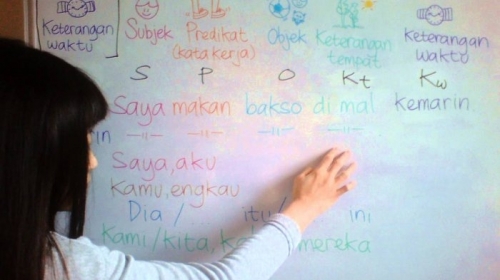 Keterangan waktu Subjek Predikat (kata kerja) Objek Keterangan tempat Keterangan waktu
S P O Kt Kw
Saya makan bakso di mal kemarin
in —"— —"— —"— —"—
Saya, aku
Kamu, engkau
Dia / itu / ini
Kami / kita, mereka